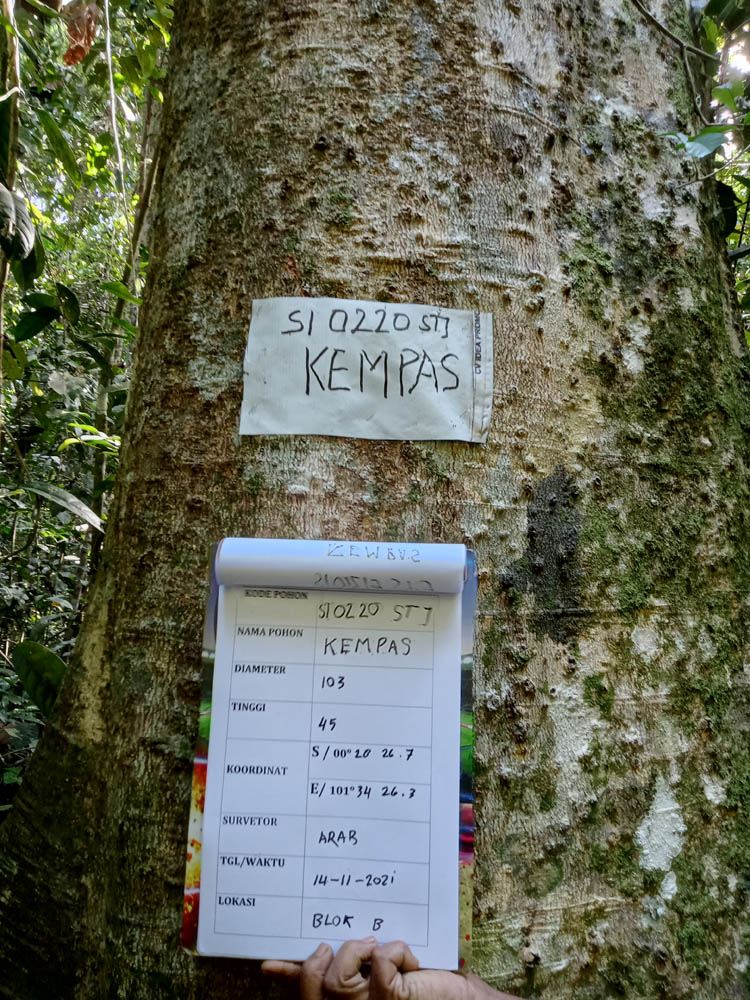 SI 0220 STJ
KEMPAS
CV IDEA
KEMPAS
KODE POHON SI 0220 STJ
NAMA POHON KEMPAS
DIAMETER 103
TINGGI 45
KOORDINAT S/ 00° 20 26.7
E/ 101° 34 26.3
SURVETOR ARAB
TGL/WAKTU 14-11-2021
LOKASI BLOK B